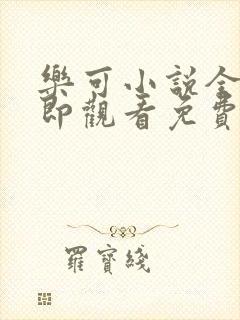 樂可小說全
即觀看免費
羅寶綫